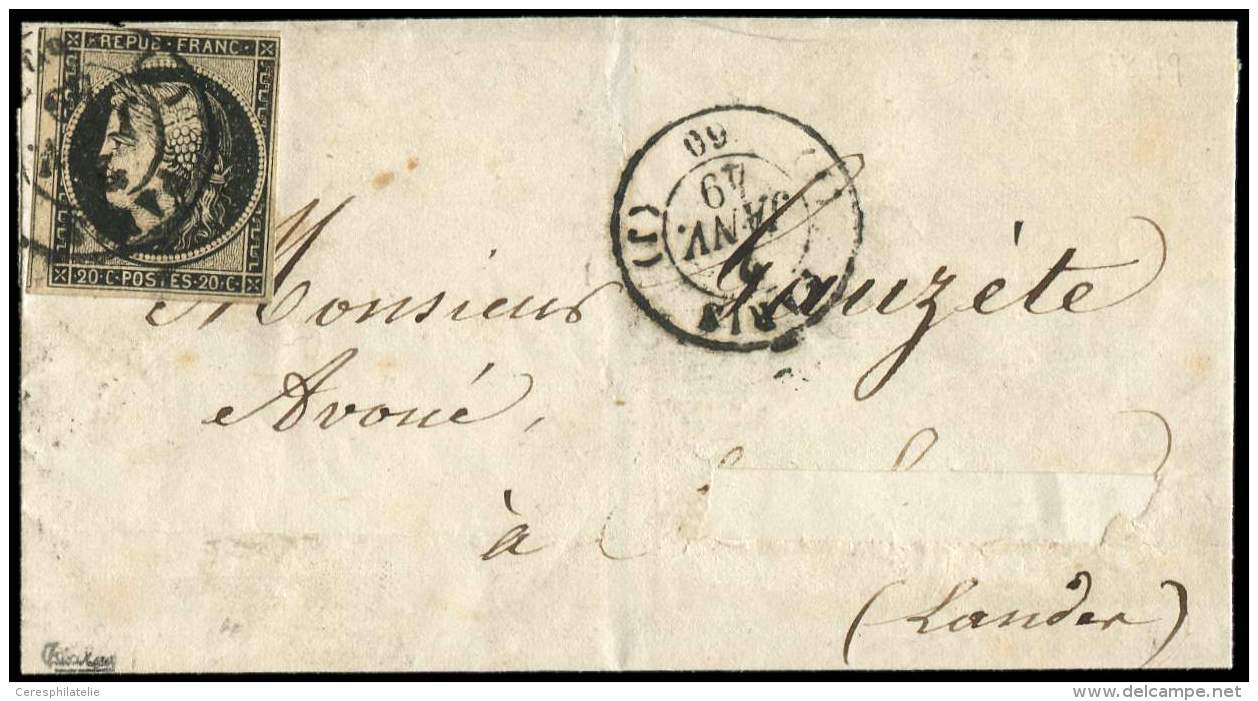 REPUB · FRANC ·
20 · C · POSTES · 20 · C ·
PARIS (J) 60
JANV.
49
Monsieur Gauzéte
Avoué,
à
(Landes)
Ceresphilatelie
www.delcampe.net